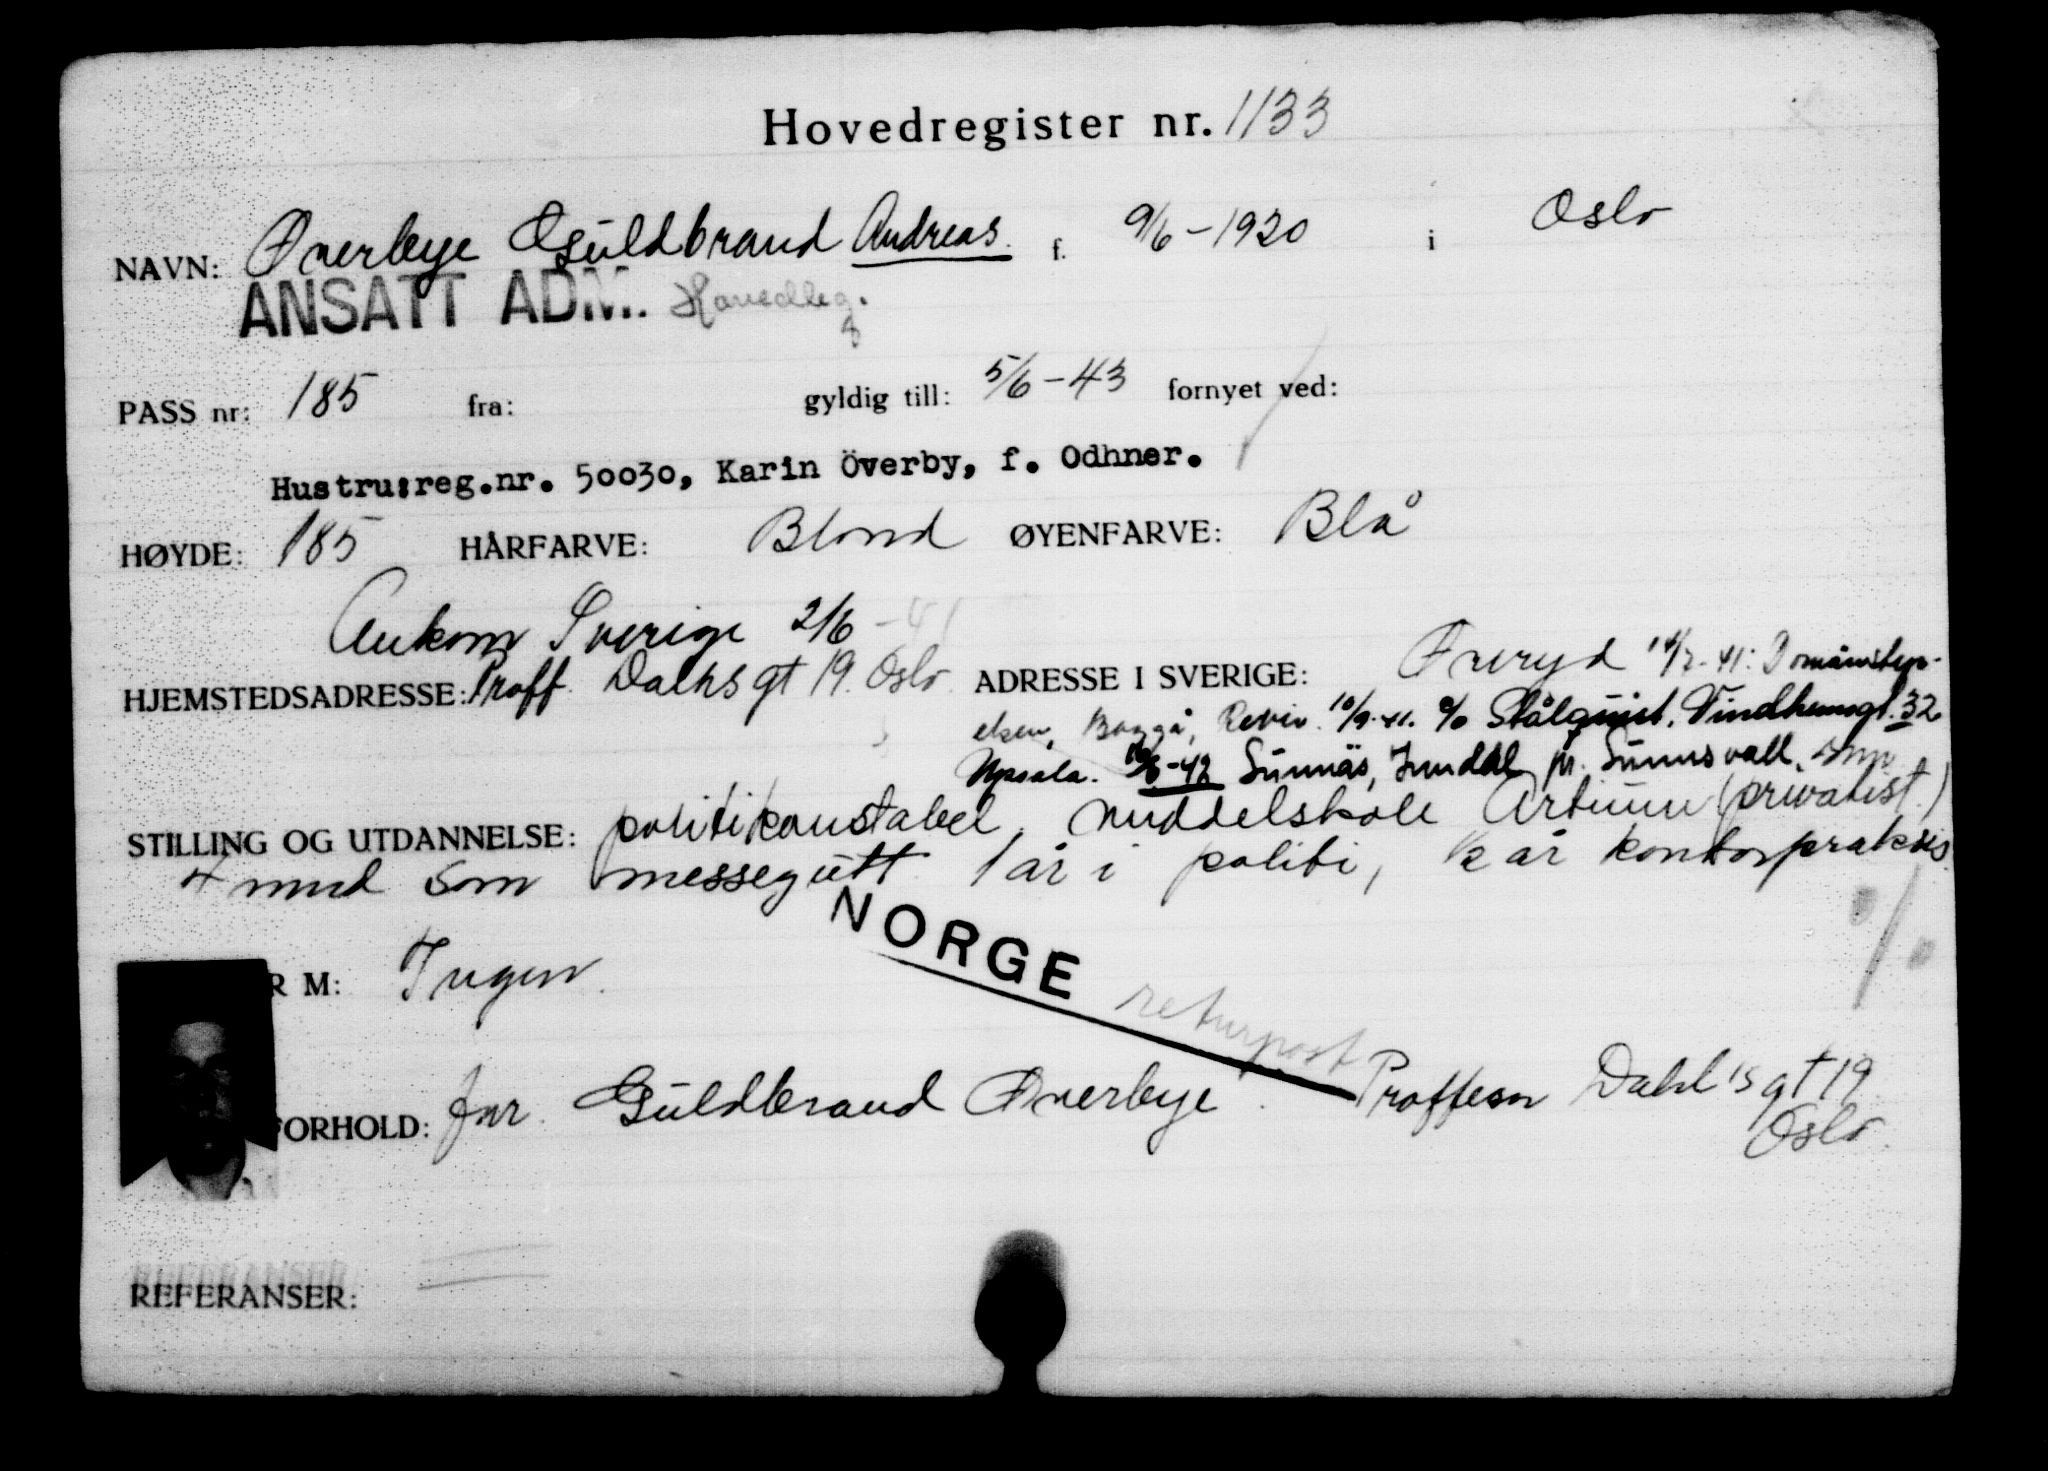 Hovedregister nr. 1133
NAVN: Øverbye Guldbrand Andreas. f. 9/6-1920 i Oslo
ANSATT ADM. Hovedleg.
PASS nr: 185 fra: gyldig till: 5/6-43 fornyet ved:
Hustru:reg.nr. 50030, Karin Överby, f. Odhner.
HØYDE: 185 HÅRFARVE: Blond ØYENFARVE: Blå
Ankom Sverige 2/6-41
HJEMSTEDSADRESSE: Proff. Dahls gt 19. Oslo ADRESSE I SVERIGE: Öreryd 14/7-41: Domänstyr-
elsen, Revir. 10/9-41. c/o Stålquist, Vindhemsgt. 32
Upsala. Sunnäs, Inndal pr. Sunnsvall.
STILLING OG UTDANNELSE: politikonstabel, middelskole Artium (privatist.)
4 mnd som messegutt 1 år i politi, ½ år kontorpraksis
R M: Ingen.
NORGE
returpost
FORHOLD: far. Guldbrand Øverbye. Proffesor Dahl's gt 19
Oslo.
REFERANSER: